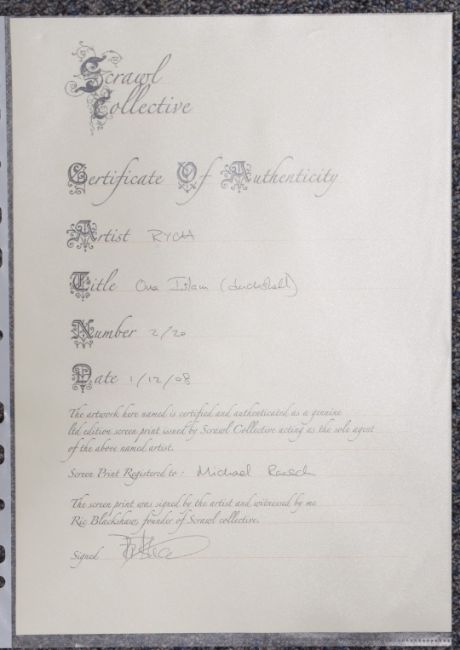 Scrawl
Collective
Certificate Of Authenticity
Artist RYCA
Title Our Islam (duckshell)
Number 2/20
Date 1/12/08
The artwork here named is certified and authenticated as a genuine
ltd edition screen print issued by Scrawl Collective acting as the sole agent
of the above named artist.
Screen Print Registered to : Michael
The screen print was signed by the artist and witnessed by me
Ric Blackshaw, founder of Scrawl collective.
Signed